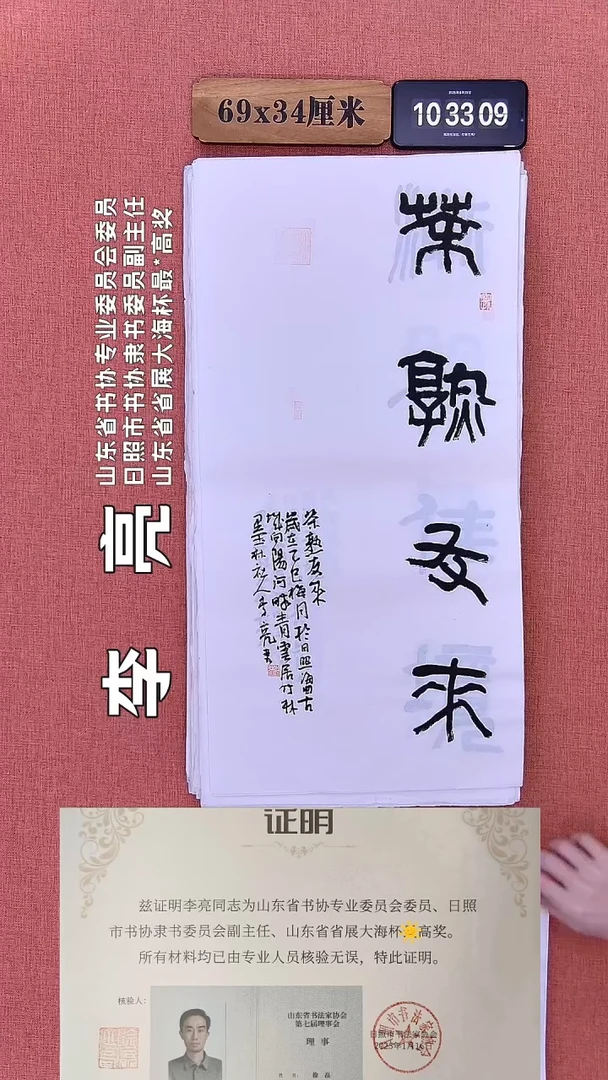 69x34厘米
10 33 09
山东省书协专业委员会委员
日照市书协隶书委员副主任
山东省省展大海杯最*高奖
李亮
茶熟友来
茶熟友来
岁在乙巳梅月於日照海曲古
城向阳河畔青云居竹林
墨主林泉人李亮书
证明
兹证明李亮同志为山东省书协专业委员会委员、日照
市书协隶书委员会副主任、山东省省展大海杯高奖。
所有材料均已由专业人员核验无误，特此证明。
核验人：
山东省书法家协会
第七届理事会
理 事
日照市书法家协会
2025年1月16日